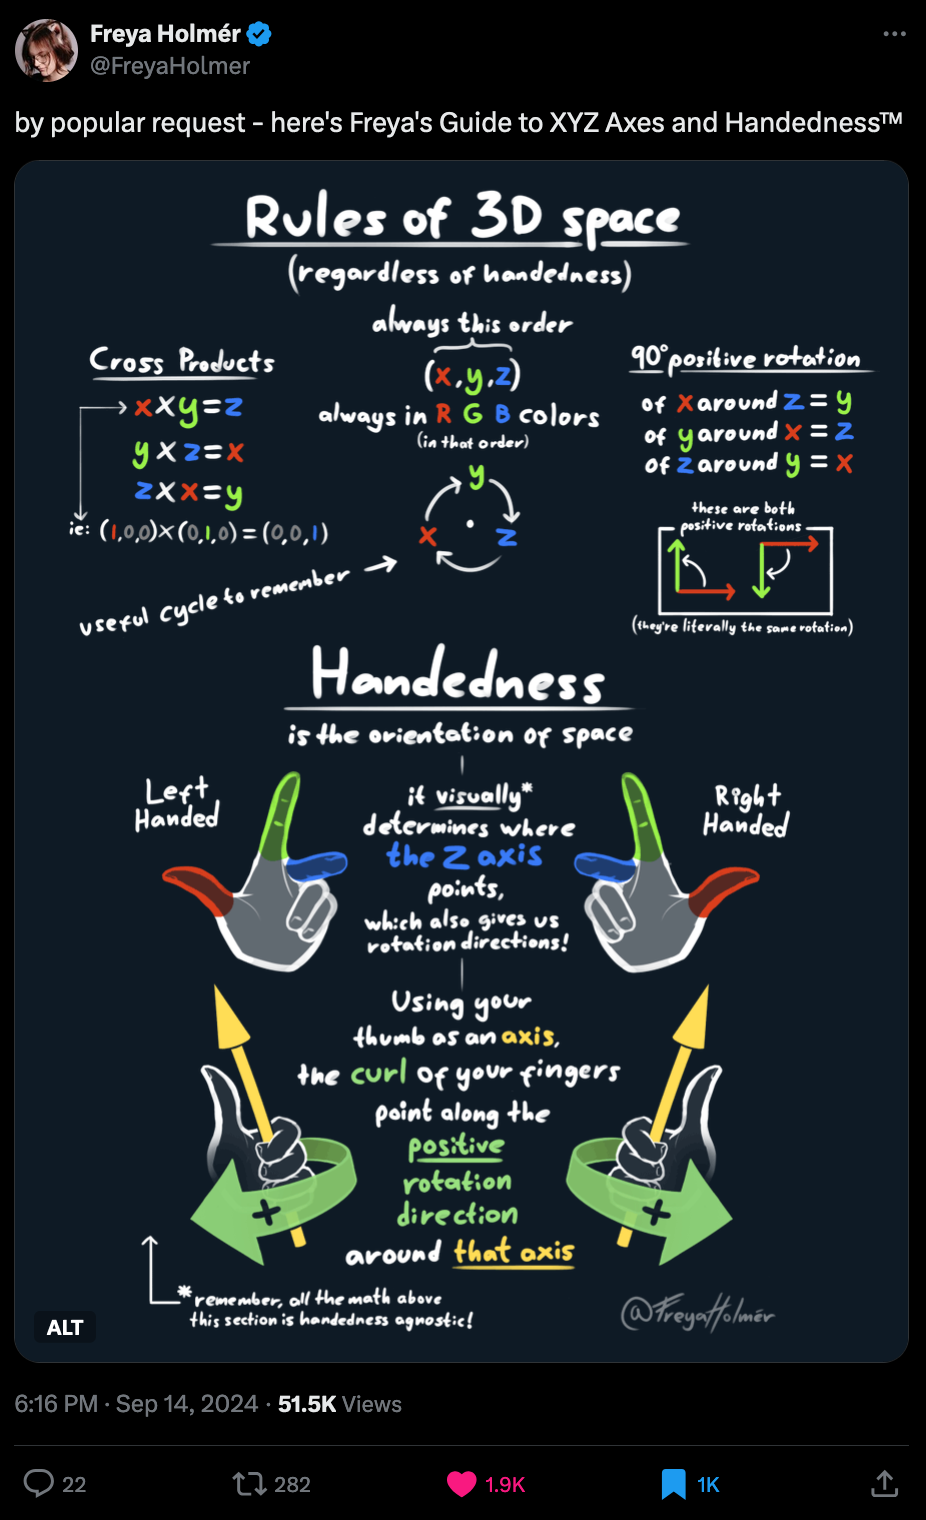 Freya Holmér
@FreyaHolmer
by popular request - here's Freya's Guide to XYZ Axes and Handedness™
Rules of 3D space
(regardless of handedness)
always this order
(x,y,z)
always in R G B colors
(in that order)
Cross Products
x×y=z
y×z=x
z×x=y
ie: (1,0,0)×(0,1,0)=(0,0,1)
y
x
z
useful cycle to remember
90° positive rotation
of x around z = y
of y around x = z
of z around y = x
these are both
positive rotations
(they're literally the same rotation)
Handedness
is the orientation of space
Left
Handed
it visually*
determines where
the Z axis
points,
which also gives us
rotation directions!
Right
Handed
Using your
thumb as an axis,
the curl of your fingers
point along the
positive
rotation
direction
around that axis
+
+
*remember, all the math above
this section is handedness agnostic!
@FreyaHolmér
ALT
6:16 PM · Sep 14, 2024 · 51.5K Views
22
282
1.9K
1K